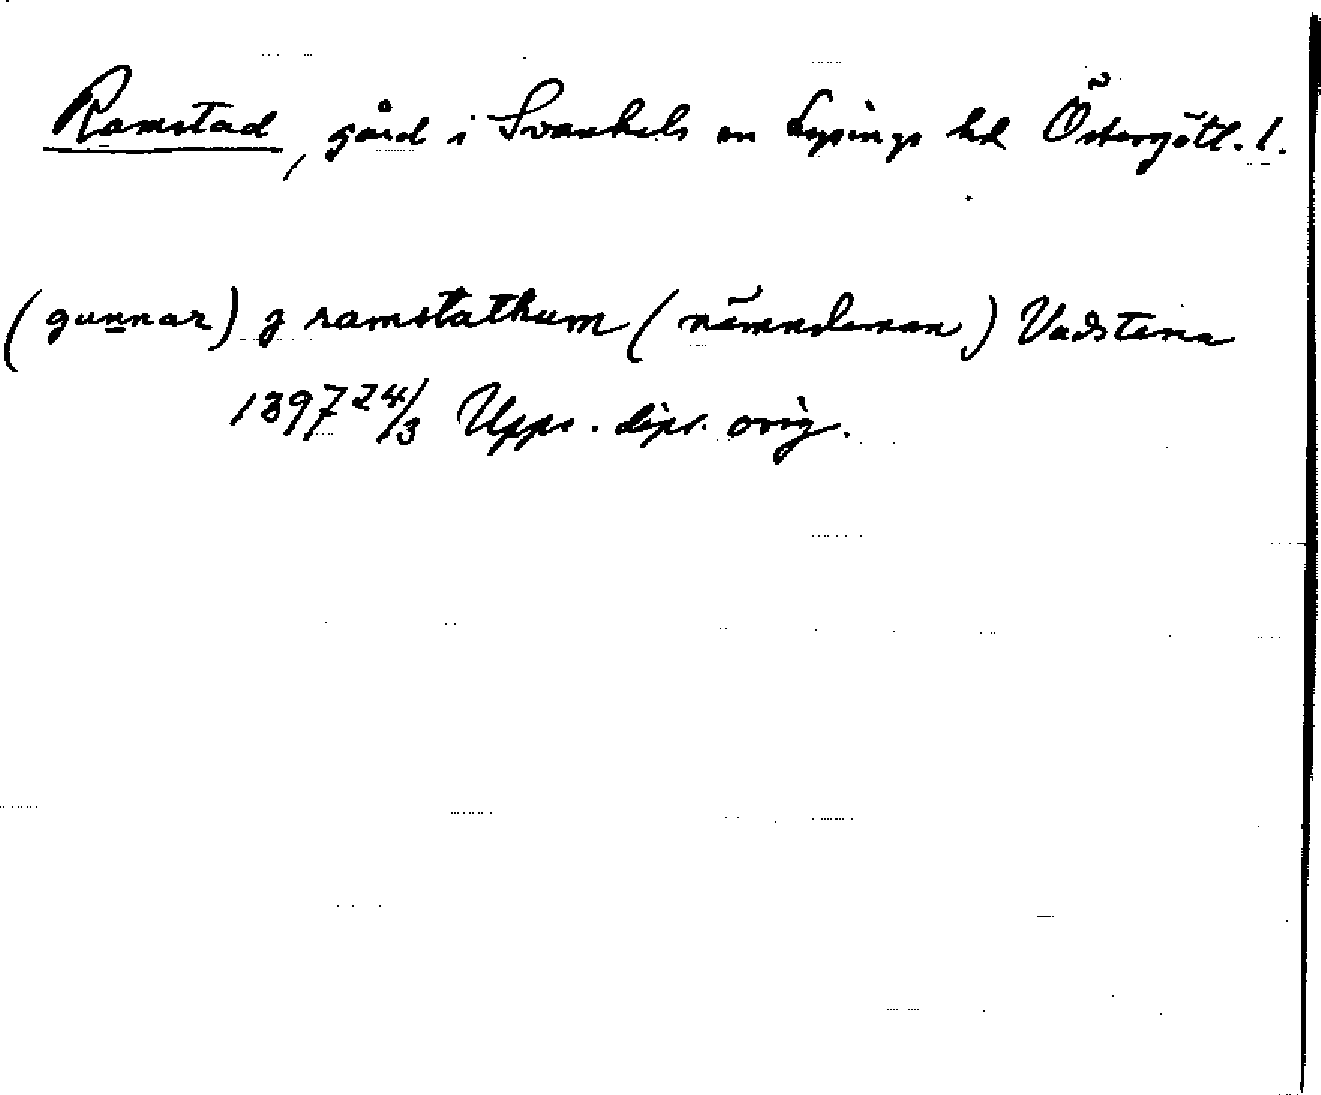 Ramstad, gård i Svanhals sn Lysings hd Östergötl. l.
(gunnar) j ramstathum (nämndeman) Vadstena
1397 24/3 Upps. dipl. orig.